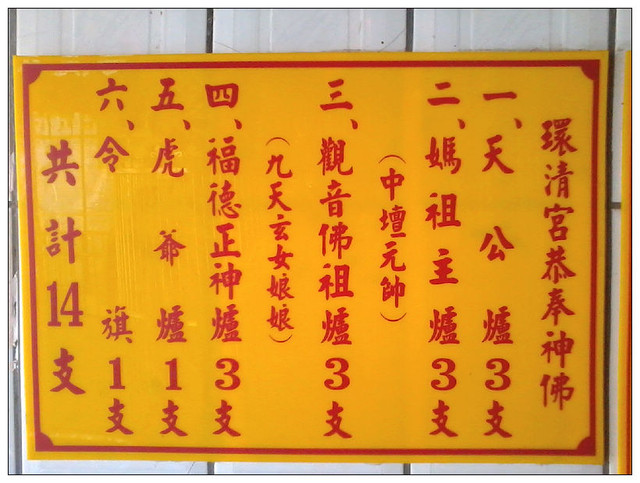 環清宮恭奉神佛
一、天公爐3支
二、媽祖主爐3支
（中壇元帥）
三、觀音佛祖爐3支
（九天玄女娘娘）
四、福德正神爐3支
五、虎爺爐1支
六、令旗1支
共計14支